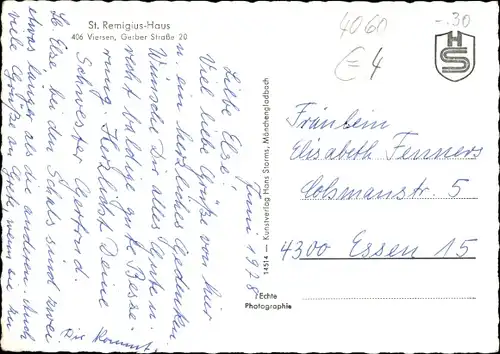 St. Remigius-Haus
406 Viersen, Gerber Straße 20
4060
€4
-.30
HS
Juni 1978
Liebe Else!
Viel liebe Grüße von hier
u. ein herzliches Gedenken
Wünsche Dir alles Gute u.
recht baldige gute Besse-
rung. Herzlichst Deine
Schwester Gertrud.
Lb. Else, bei den Schals sind zwei
etwas länger als die anderen. Auch
viele Grüße an Grete wenn sie zu
Dir kommt.
14514 — Kunstverlag Hans Storms, Mönchengladbach
Echte
Photographie
Fräulein
Elisabeth Fenners
Colsmanstr. 5
4300 Essen 15